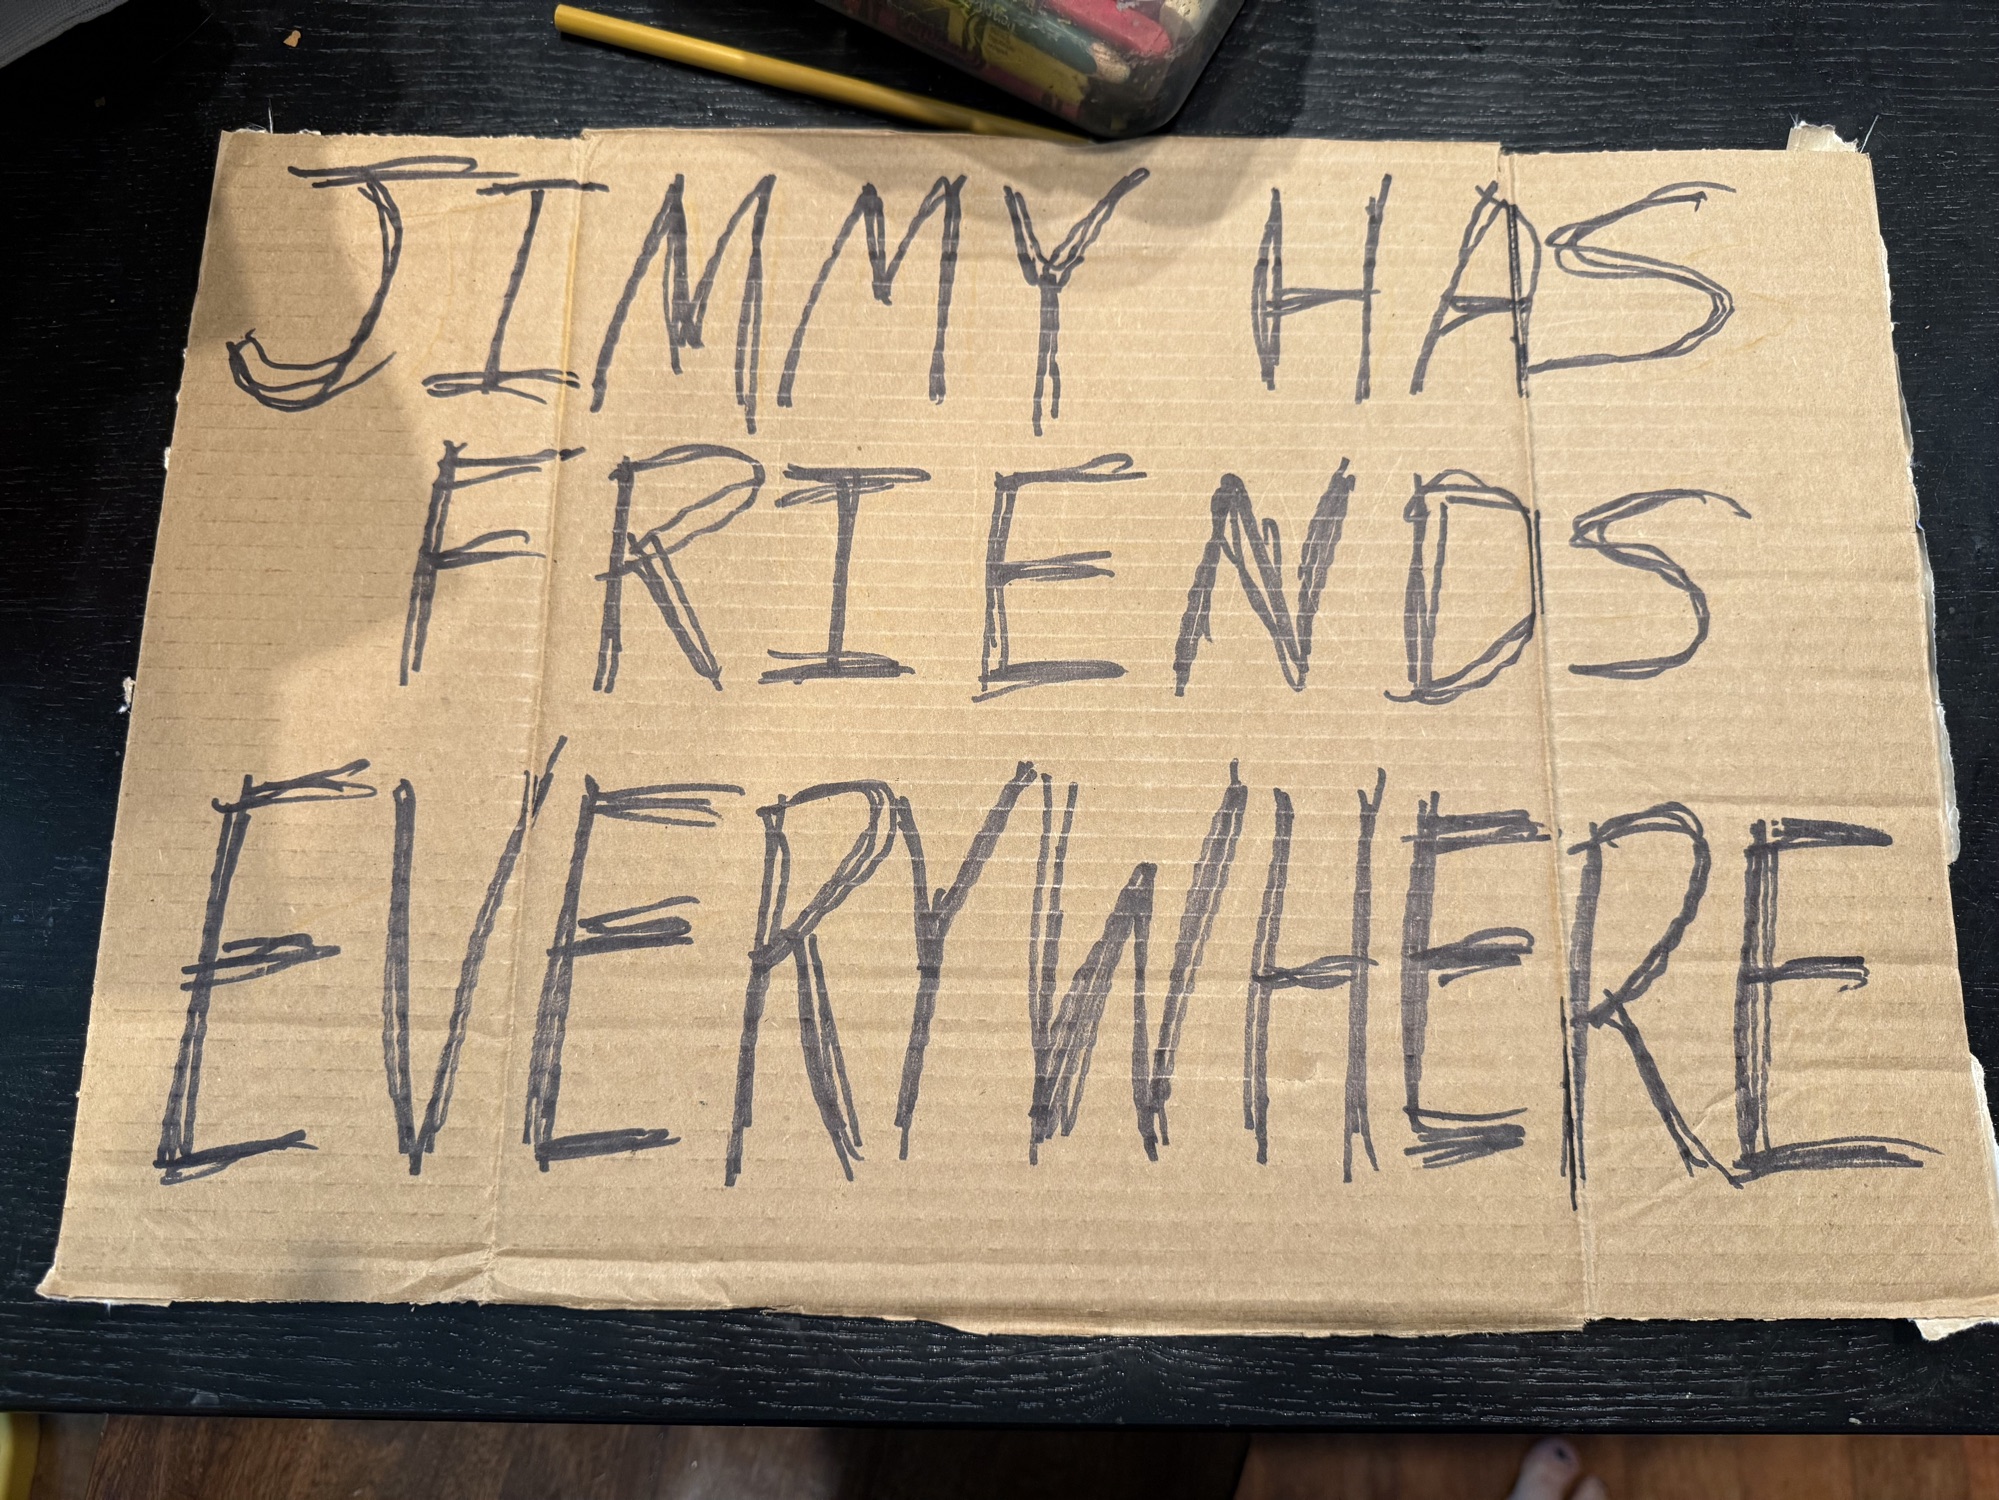 JIMMY HAS
FRIENDS
EVERYWHERE